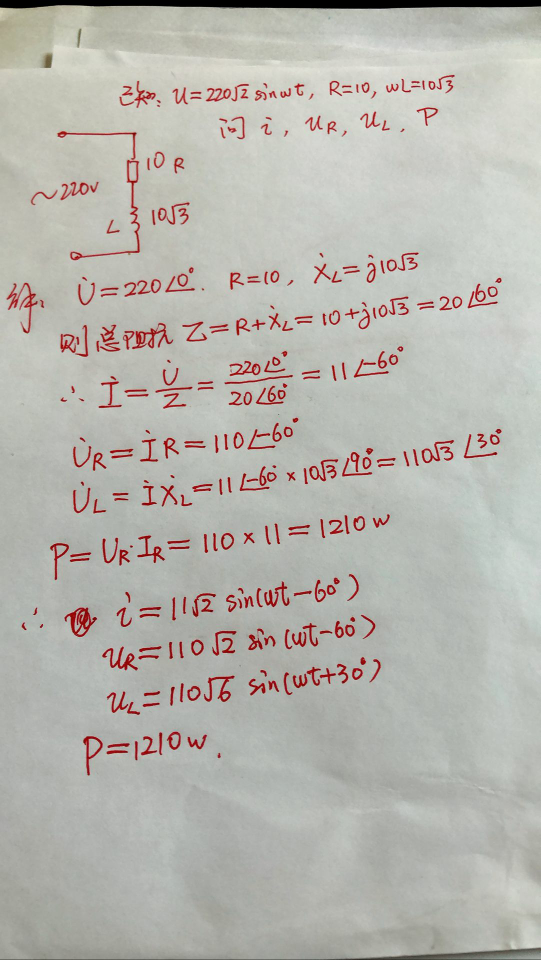 已知: u=220√2 sinωt, R=10, ωL=10√3
问 i, uR, uL, P
~220V
10 R
L 10√3
解: U̇=220∠0°. R=10, ẊL=j10√3
则总阻抗 Z=R+ẊL=10+j10√3=20∠60°
∴ İ=U̇/Z=220∠0°/20∠60°=11∠-60°
U̇R=İR=110∠-60°
U̇L=İẊL=11∠-60°×10√3∠90°=110√3∠30°
P=UR·IR=110×11=1210w
∴ i=11√2 sin(ωt-60°)
uR=110√2 sin(ωt-60°)
uL=110√6 sin(ωt+30°)
P=1210w.